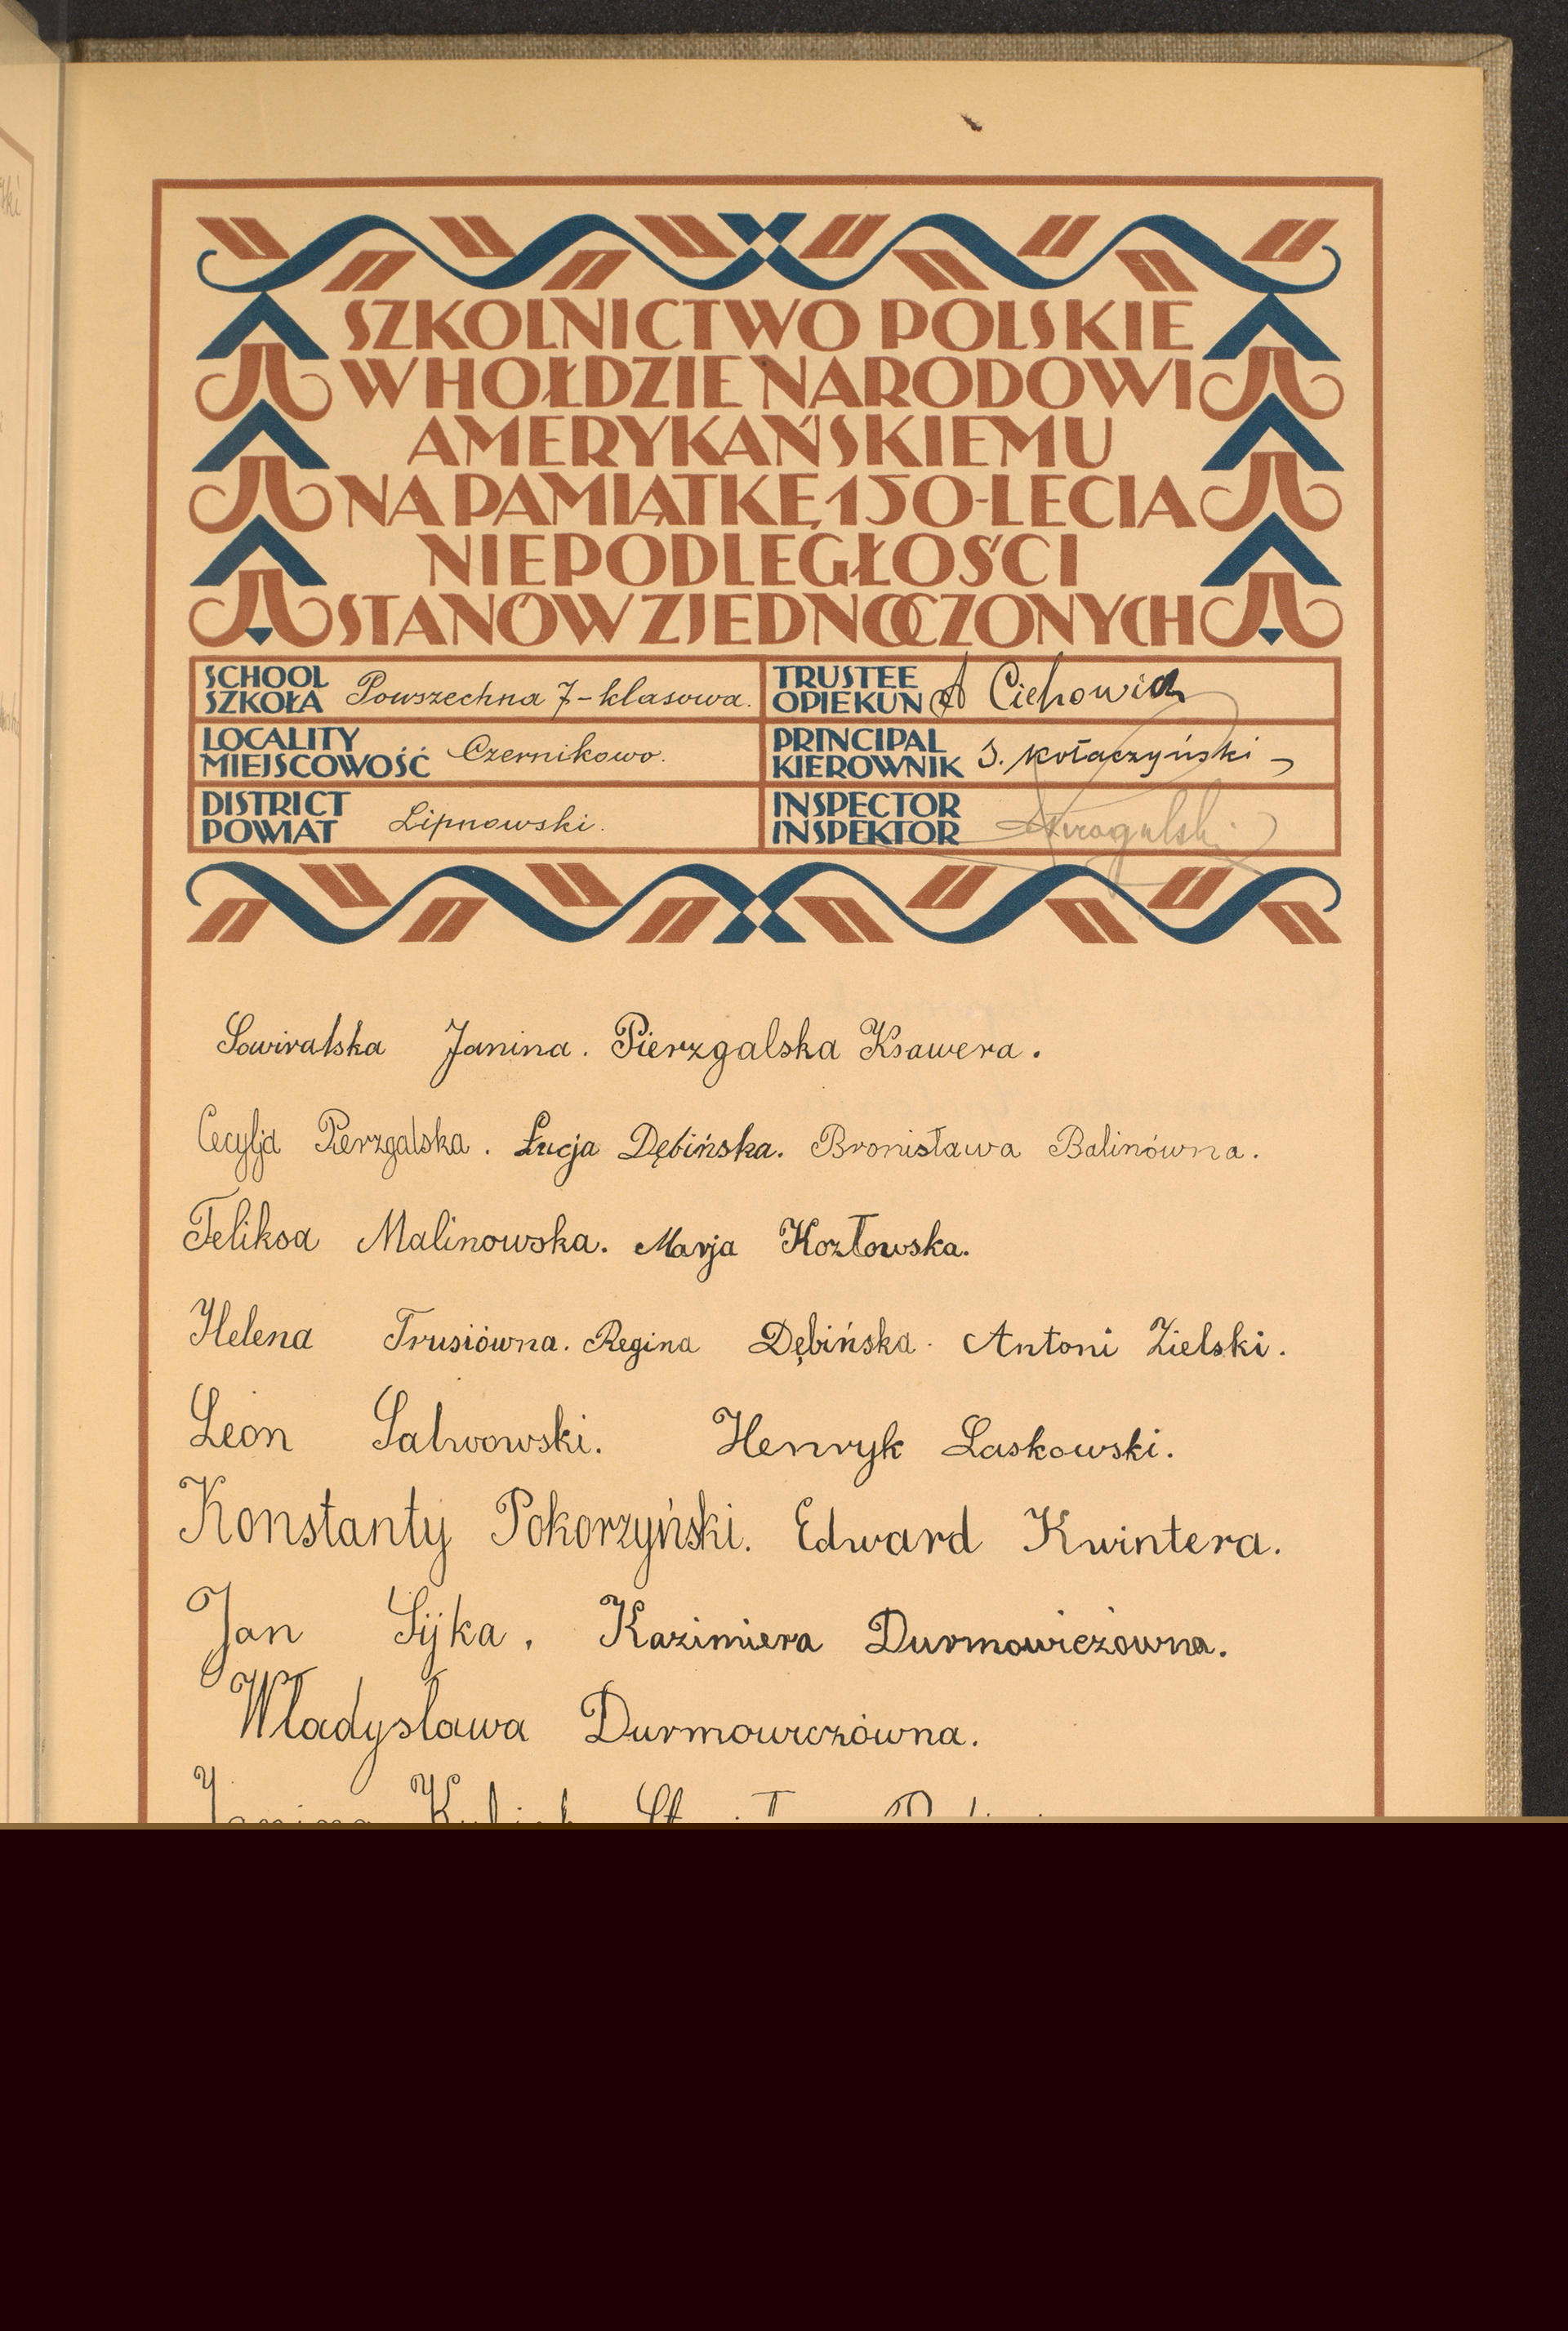 SZKOLNICTWO POLSKIE
W HOŁDZIE NARODOWI
AMERYKAŃSKIEMU
NA PAMIĄTKĘ 150-LECIA
NIEPODLEGŁOŚCI
STANÓW ZJEDNOCZONYCH
SCHOOL
SZKOŁA Powszechna 7-klasowa.
TRUSTEE
OPIEKUN A Cichowicz
LOCALITY
MIEJSCOWOŚĆ Czernikowo.
PRINCIPAL
KIEROWNIK S. Kołaczyński
DISTRICT
POWIAT Lipnowski.
INSPECTOR
INSPEKTOR
Janina. Pierzgalska Ksawera.
Cecylja Pierzgalska. Łucja Dębińska. Bronisława Balinówna.
Feliksa Malinowska. Marja Kozłowska.
Helena Trusiówna. Regina Dębińska. Antoni Zielski.
Leon Salwowski. Henryk Laskowski.
Konstanty Pokorzyński. Edward Kwintera.
Jan Sijka. Kazimiera Durmowiczówna.
Władysława Durmowiczówna.
Janina